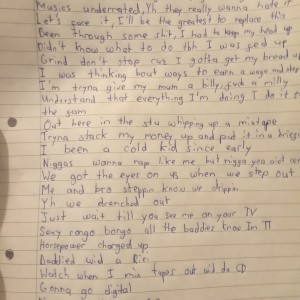 Musics underrated, Yh they really wanna hate it
Let's face it, I'll be the greatest to replace this
Been through some shit, I had to keep my head up
Didn't know what to do tbh I was fed up
Grind don't stop cus I gotta get my bread up
I was thinking bout ways to earn a wage and step
I'm tryna give my mum a billy, fuck a milly
Understand that everything I'm doing I do it for
the gang
Out here in the stu whipping up a mixtape
Tryna stack my money up and put it in a brief
I been a cold kid since early
Niggas wanna rap like me but nigga you aint
We got the eyes on us when we step out
Me and bro steppin know we drippin
Yh we drenched out
Just wait till you see me on your TV
Sexy congo bongo all the baddies know in
Horsepower charged up
Baddied wid a
Watch when I mix tapes out wid da CD
Gonna go digital